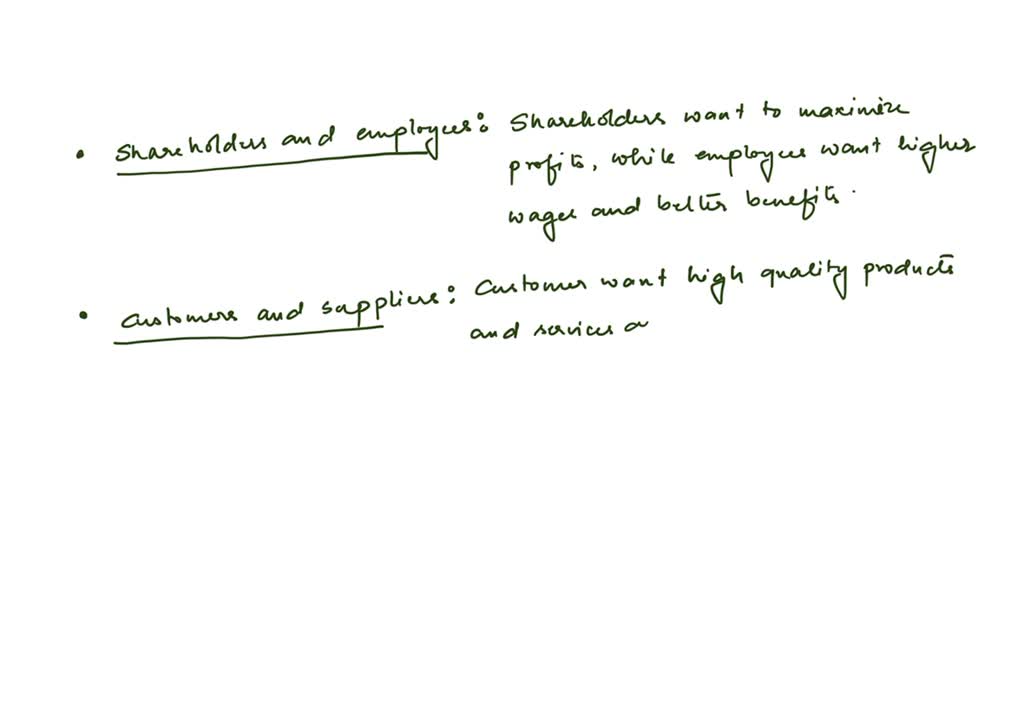 • Shareholders and employees: Shareholders want to maximize
profits, while employees want higher
wages and better benefits.
• Customers and suppliers: Customer want high quality products
and services a